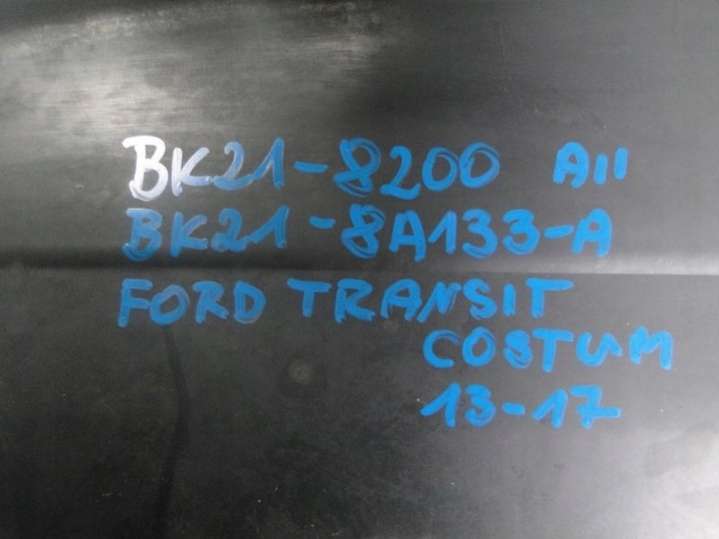 BK21-8200 A11
BK21-8A133-A
FORD TRANSIT
COSTUM
13-17